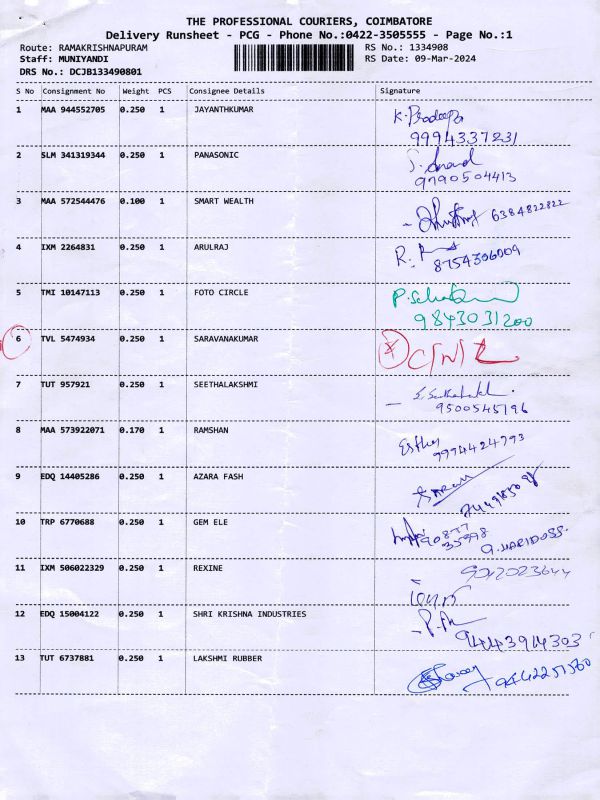 THE PROFESSIONAL COURIERS, COIMBATORE
Delivery Runsheet - PCG - Phone No.:0422-3505555 - Page No.:1
Route: RAMAKRISHNAPURAM RS No.: 1334908
Staff: MUNIYANDI RS Date: 09-Mar-2024
DRS No.: DCJB133490801
S No Consignment No Weight PCS Consignee Details Signature
1 MAA 944552705 0.250 1 JAYANTHKUMAR K. Pradeepa
9994337231
2 SLM 341319344 0.250 1 PANASONIC J. Anand
9790504413
3 MAA 572544476 0.100 1 SMART WEALTH 6384822822
4 IXM 2264831 0.250 1 ARULRAJ R.
8754306009
5 TMI 10147113 0.250 1 FOTO CIRCLE
9843031200
6 TVL 5474934 0.250 1 SARAVANAKUMAR
7 TUT 957921 0.250 1 SEETHALAKSHMI
9500545196
8 MAA 573922071 0.170 1 RAMSHAN Esther
9974424793
9 EDQ 14405286 0.250 1 AZARA FASH
10 TRP 6770688 0.250 1 GEM ELE 90877
35398 G. HARIDOSS.
11 IXM 506022329 0.250 1 REXINE
12 EDQ 15004122 0.250 1 SHRI KRISHNA INDUSTRIES
9443914303
13 TUT 6737881 0.250 1 LAKSHMI RUBBER 9442251560